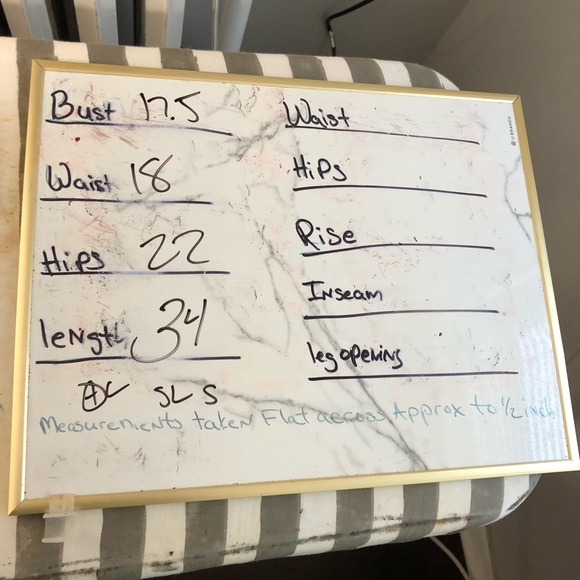 Bust 17.5
Waist 18
Hips 22
length 34
SL S
Measurements taken Flat across Approx to 1/2 inch
Waist
Hips
Rise
Inseam
leg opening
U BRANDS